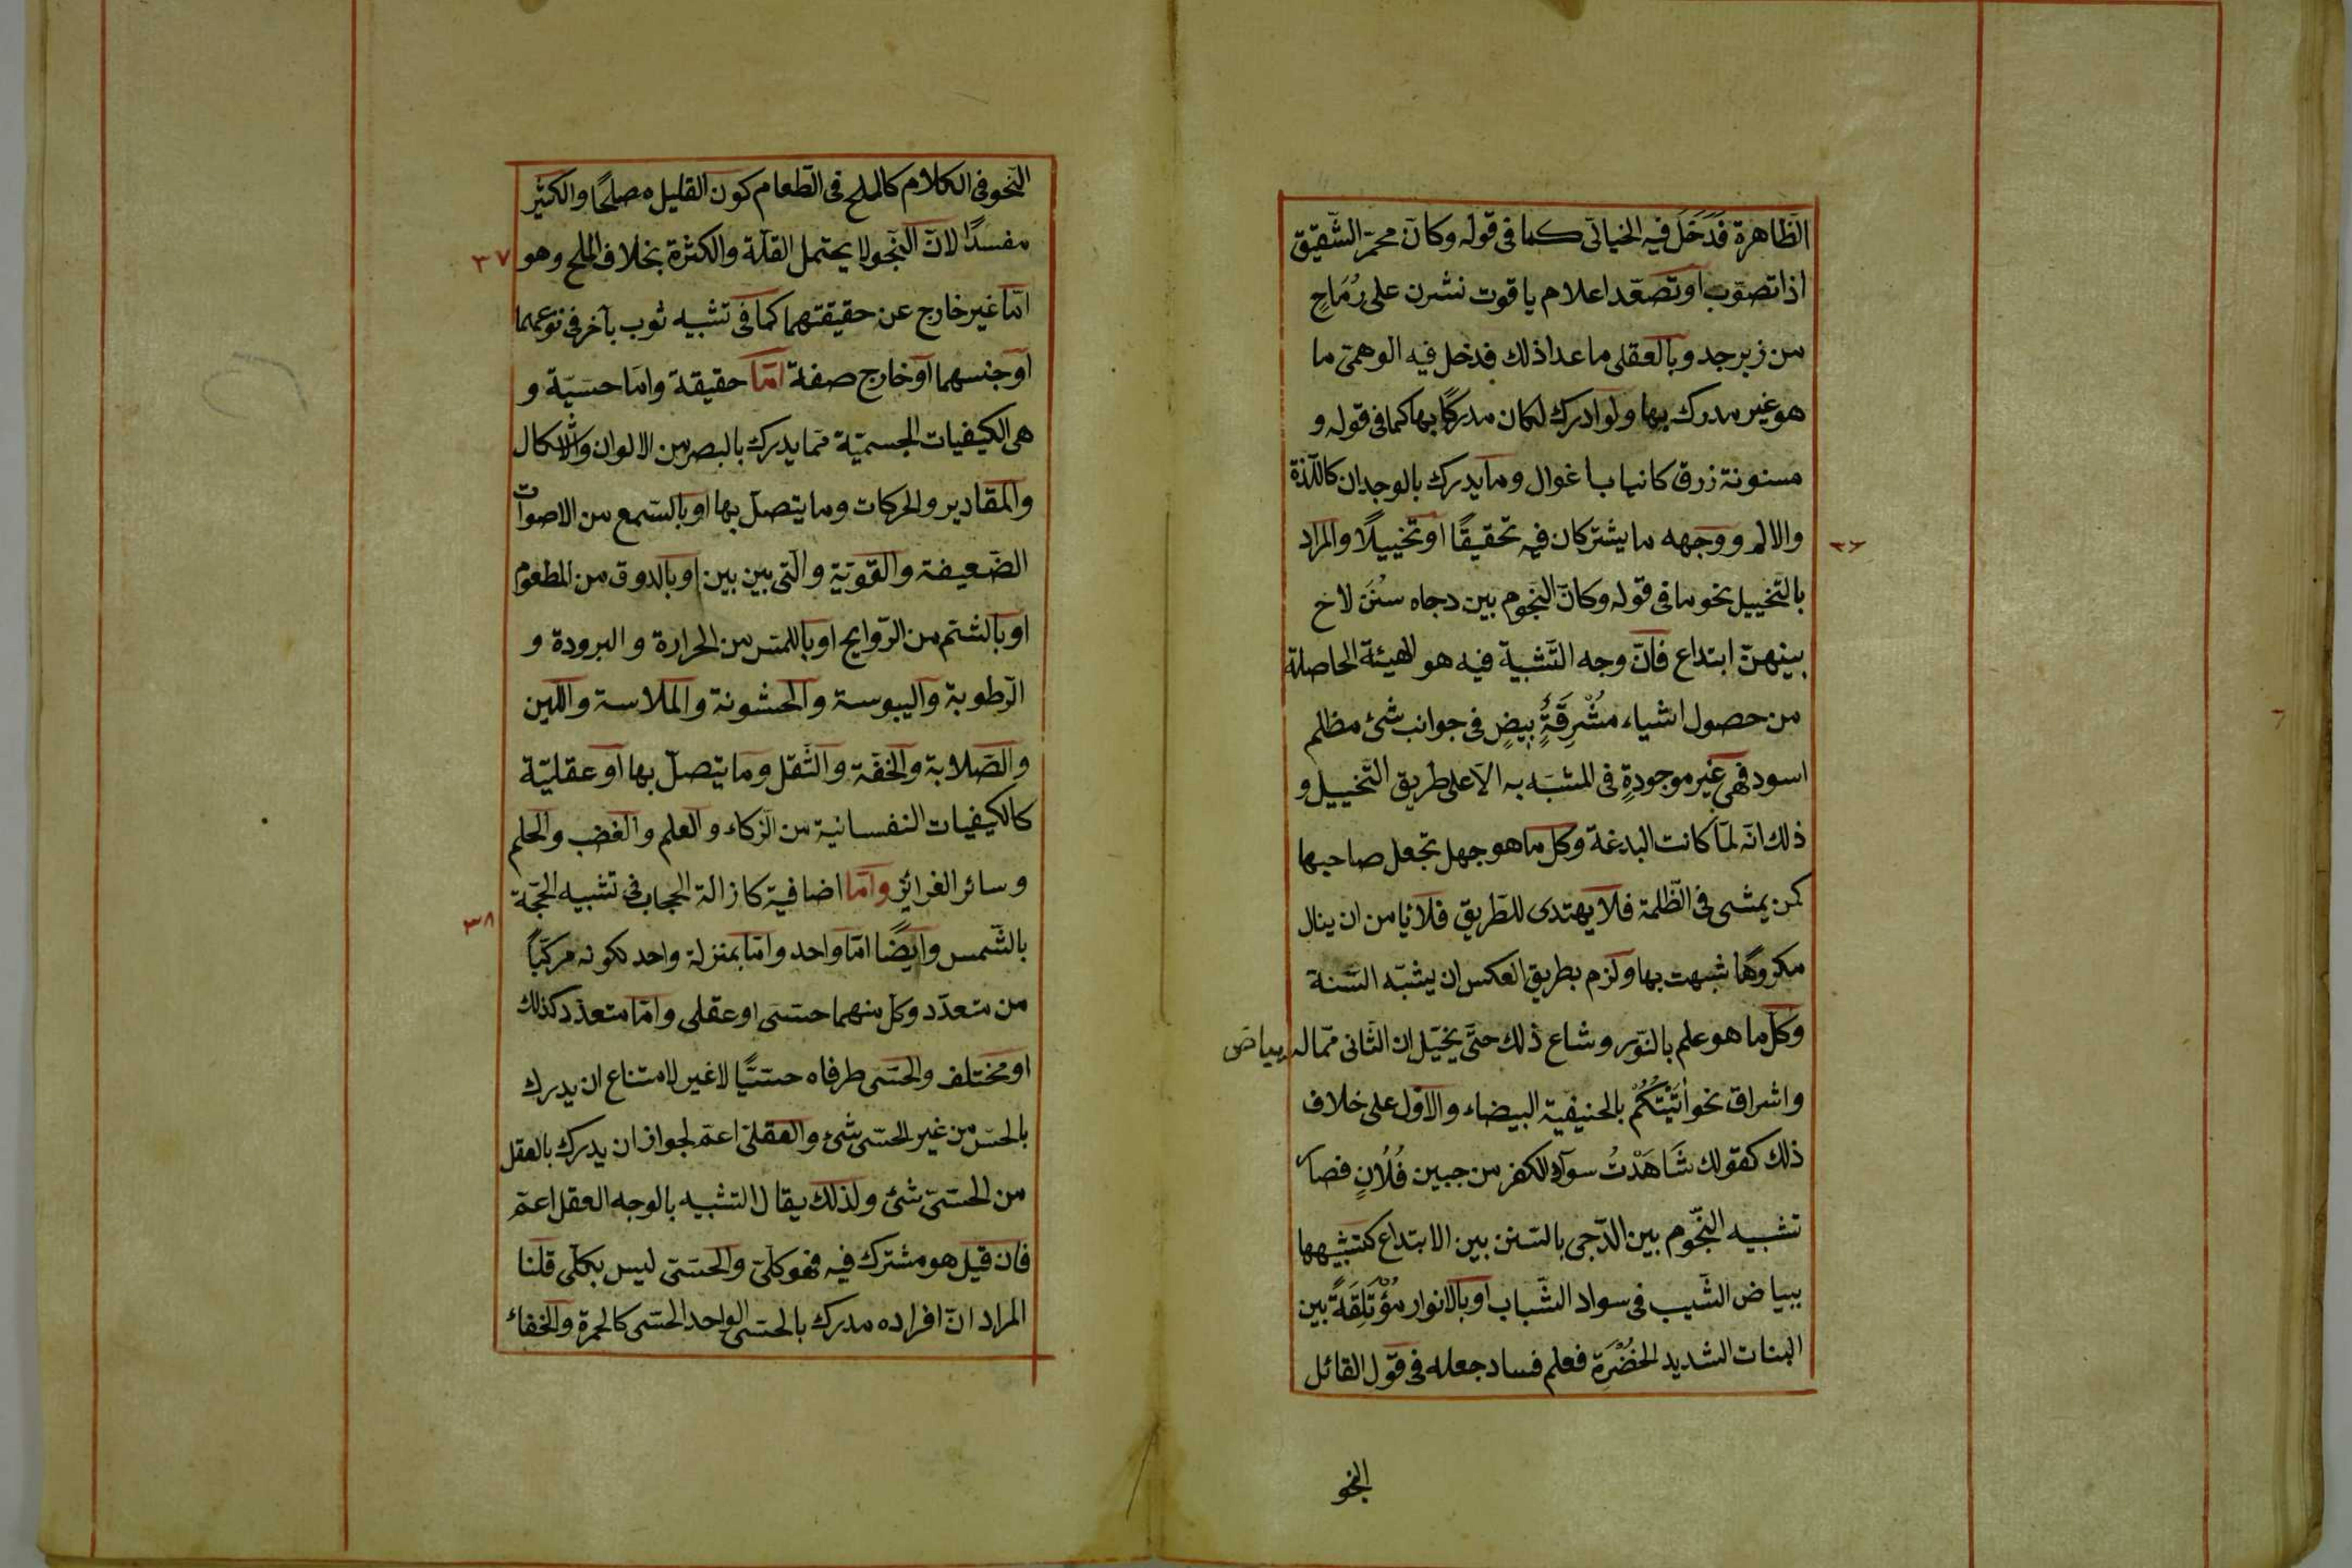 الظّاهرة فَدَخَلَ فيه الخياليّ كما فى قوله وكأنّ محمرّ الشّقيق
اذا تصوّب او تصعّد اعلام ياقوت نشرن على رُمَاحٍ
من زبرجد وبالعقلى ما عدا ذلك فدخل فيه الوهمىّ ما
هو غير مدرك بها ولو ادرك لكان مدركًا بها كما فى قوله و
مسنونة زرق كانياب اغوال وما يدرك بالوجدان كاللّذة
والالم ووجهه ما يشتركان فيه تحقيقًا او تخييلًا والمراد
٣٦
بالتّخييل نحو ما فى قوله وكانّ النّجوم بين دجاه سُنَنٌ لاح
بينهنّ ابتداع فانّ وجه التّشبية فيه هو الهيئة الحاصلة
من حصول اشياء مُشْرِقَةٍ بيضٍ فى جوانب شئ مظلم
اسود فهى غير موجودةٍ فى المشبّه به الّا على طريق التّخييل و
ذلك انّه لمّا كانت البدعة وكل ما هو جهل تجعل صاحبها
كمن يمشى فى الظّلمة فلا يهتدى للطّريق فلا يأمن ان ينال
مكروهًا شبهت بها ولزم بطريق العكس ان يشبّه السّنة
وكلّ ما هو علم بالنّور وشاع ذلك حتّى يخيّل ان الثّانى ممّا له بياض
واشراق نحو أَتَيْتُكُمْ بالحنيفية البيضاء والاوّل على خلاف
ذلك كقولك شَاهَدْتُ سواد الكفر من جبين فُلَانٍ فصار
تشبيه النّجوم بين الدّجى بالسّنن بين الابتداع كتشبيهها
ببياض الشّيب فى سواد الشّباب او بالانوار مُؤْتَلِقَةً بين
النبات الشديد الخُضْرَة فعلم فساد جعله فى قول القائل
النحو
النّحو فى الكلام كالملح فى الطّعام كون القليل مصلحًا والكثير
مفسدًا لانّ النّحو لا يحتمل القلّة والكثرة بخلاف الملح وهو
٣٧
امّا غير خارج عن حقيقتهما كما فى تشبيه ثوب بآخر فى نوعهما
او جنسهما او خارج صفة امّا حقيقة وامّا حسّيّة و
هى الكيفيات الجسميّة ممّا يدرك بالبصر من الالوان والاشكال
والمقادير والحركات وما يتصلّ بها او بالسّمع من الاصوات
الضّعيفة والقويّة والّتى بين بين او بالذوق من المطعوم
او بالشّم من الرّوايح او باللمس من الحرارة والبرودة و
الرّطوبة واليبوسة والخشونة والملاسة واللّين
والصّلابة والخفّة والثّقل وما يتصلّ بها او عقليّة
كالكيفيات النفسانية من الزكاء والعلم والغضب والحلم
وسائر الغرائز وامّا اضافية كازالة الحجاب فى تشبيه الحجّة
٣٨
بالشّمس وايضًا امّا واحد وامّا بمنزلة واحد لكونه مركّبًا
من متعدّد وكلّ منهما حسّى او عقلى وامّا متعدّد كذلك
او مختلف والحسّى طرفاه حسّيًّا لا غير لامتناع ان يدرك
بالحسّ من غير الحسّى شئ والعقلىّ اعمّ لجواز ان يدرك بالعقل
من الحسّىّ شئ ولذلك يقال التشبيه بالوجه العقل اعمّ
فان قيل هو مشترك فيه فهو كلّىّ والحسّىّ ليس بكلّى قلنا
المراد انّ افراده مدرك بالحسّى الواحد الحسّى كالحمرة والخفاء